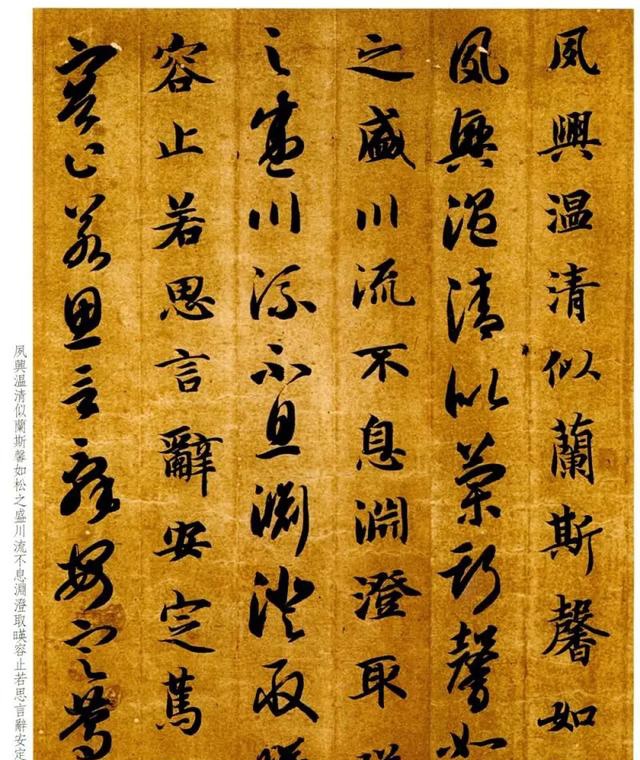 夙興温清似蘭斯馨如
夙興温清似蘭斯馨如
之盛川流不息淵澄取
之盛川流不息淵澄取
容止若思言辭安定篤
容止若思言辭安定篤
夙興温清似蘭斯馨如松之盛川流不息淵澄取暎容止若思言辭安定